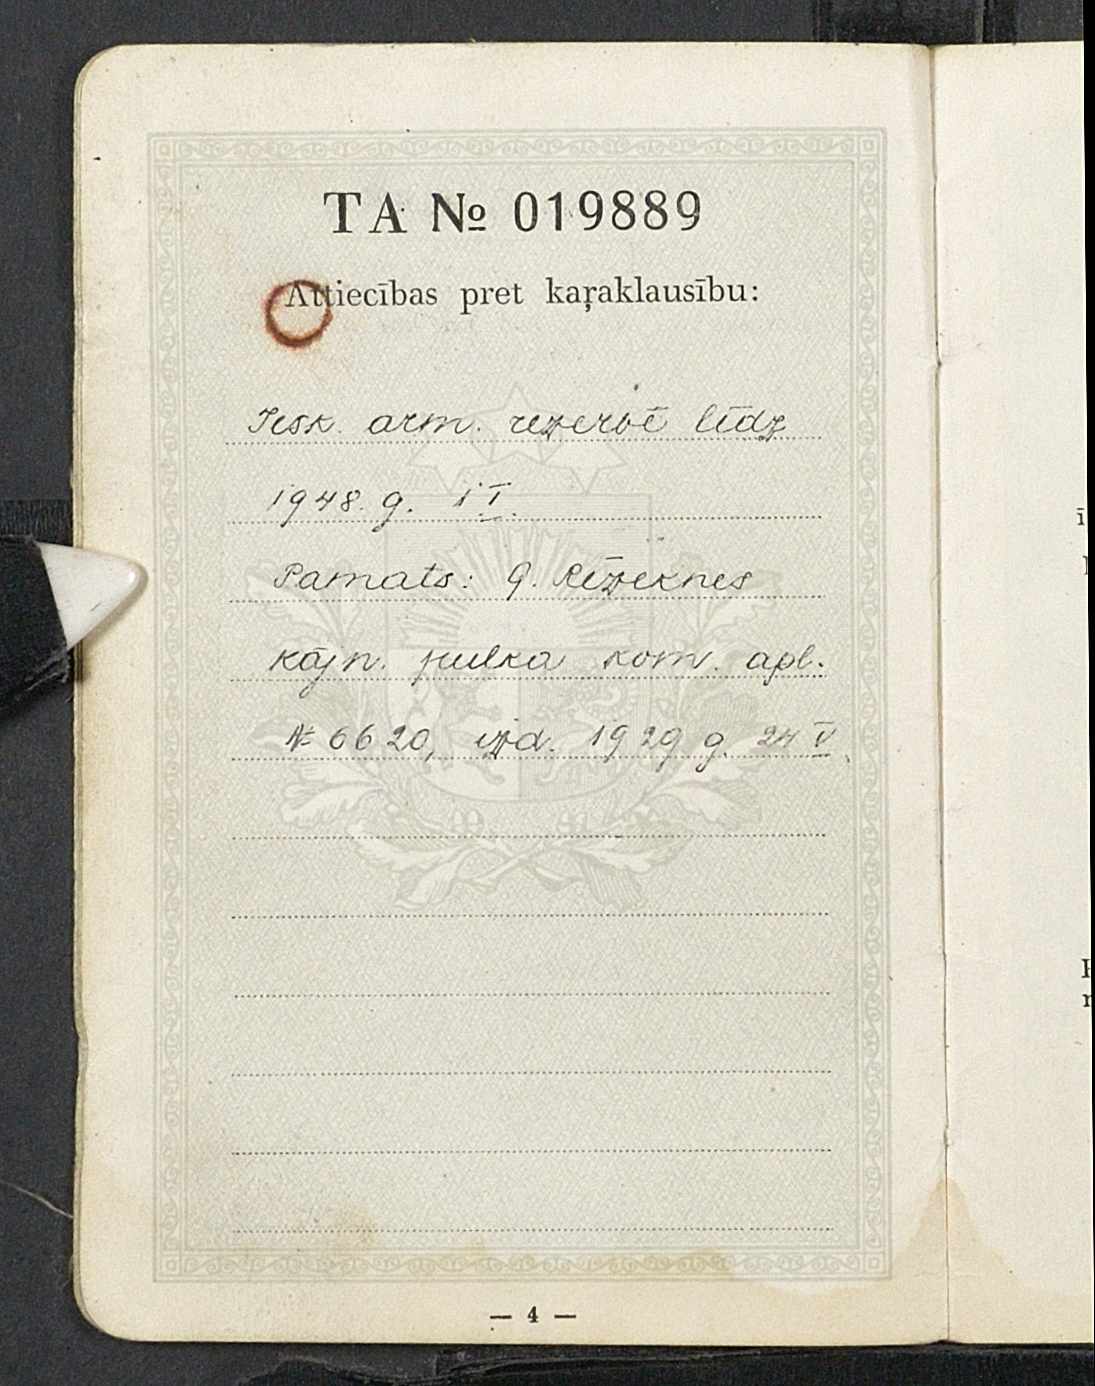 TA № 019889
Attiecības pret kaŗaklausību:
Iesk. arm. rezervē līdz
1948. g. 1 I.
Pamats: 9. Rēzeknes
kājn. pulka kom. apl.
№ 6620, izd. 1929 g. 24 V
— 4 —